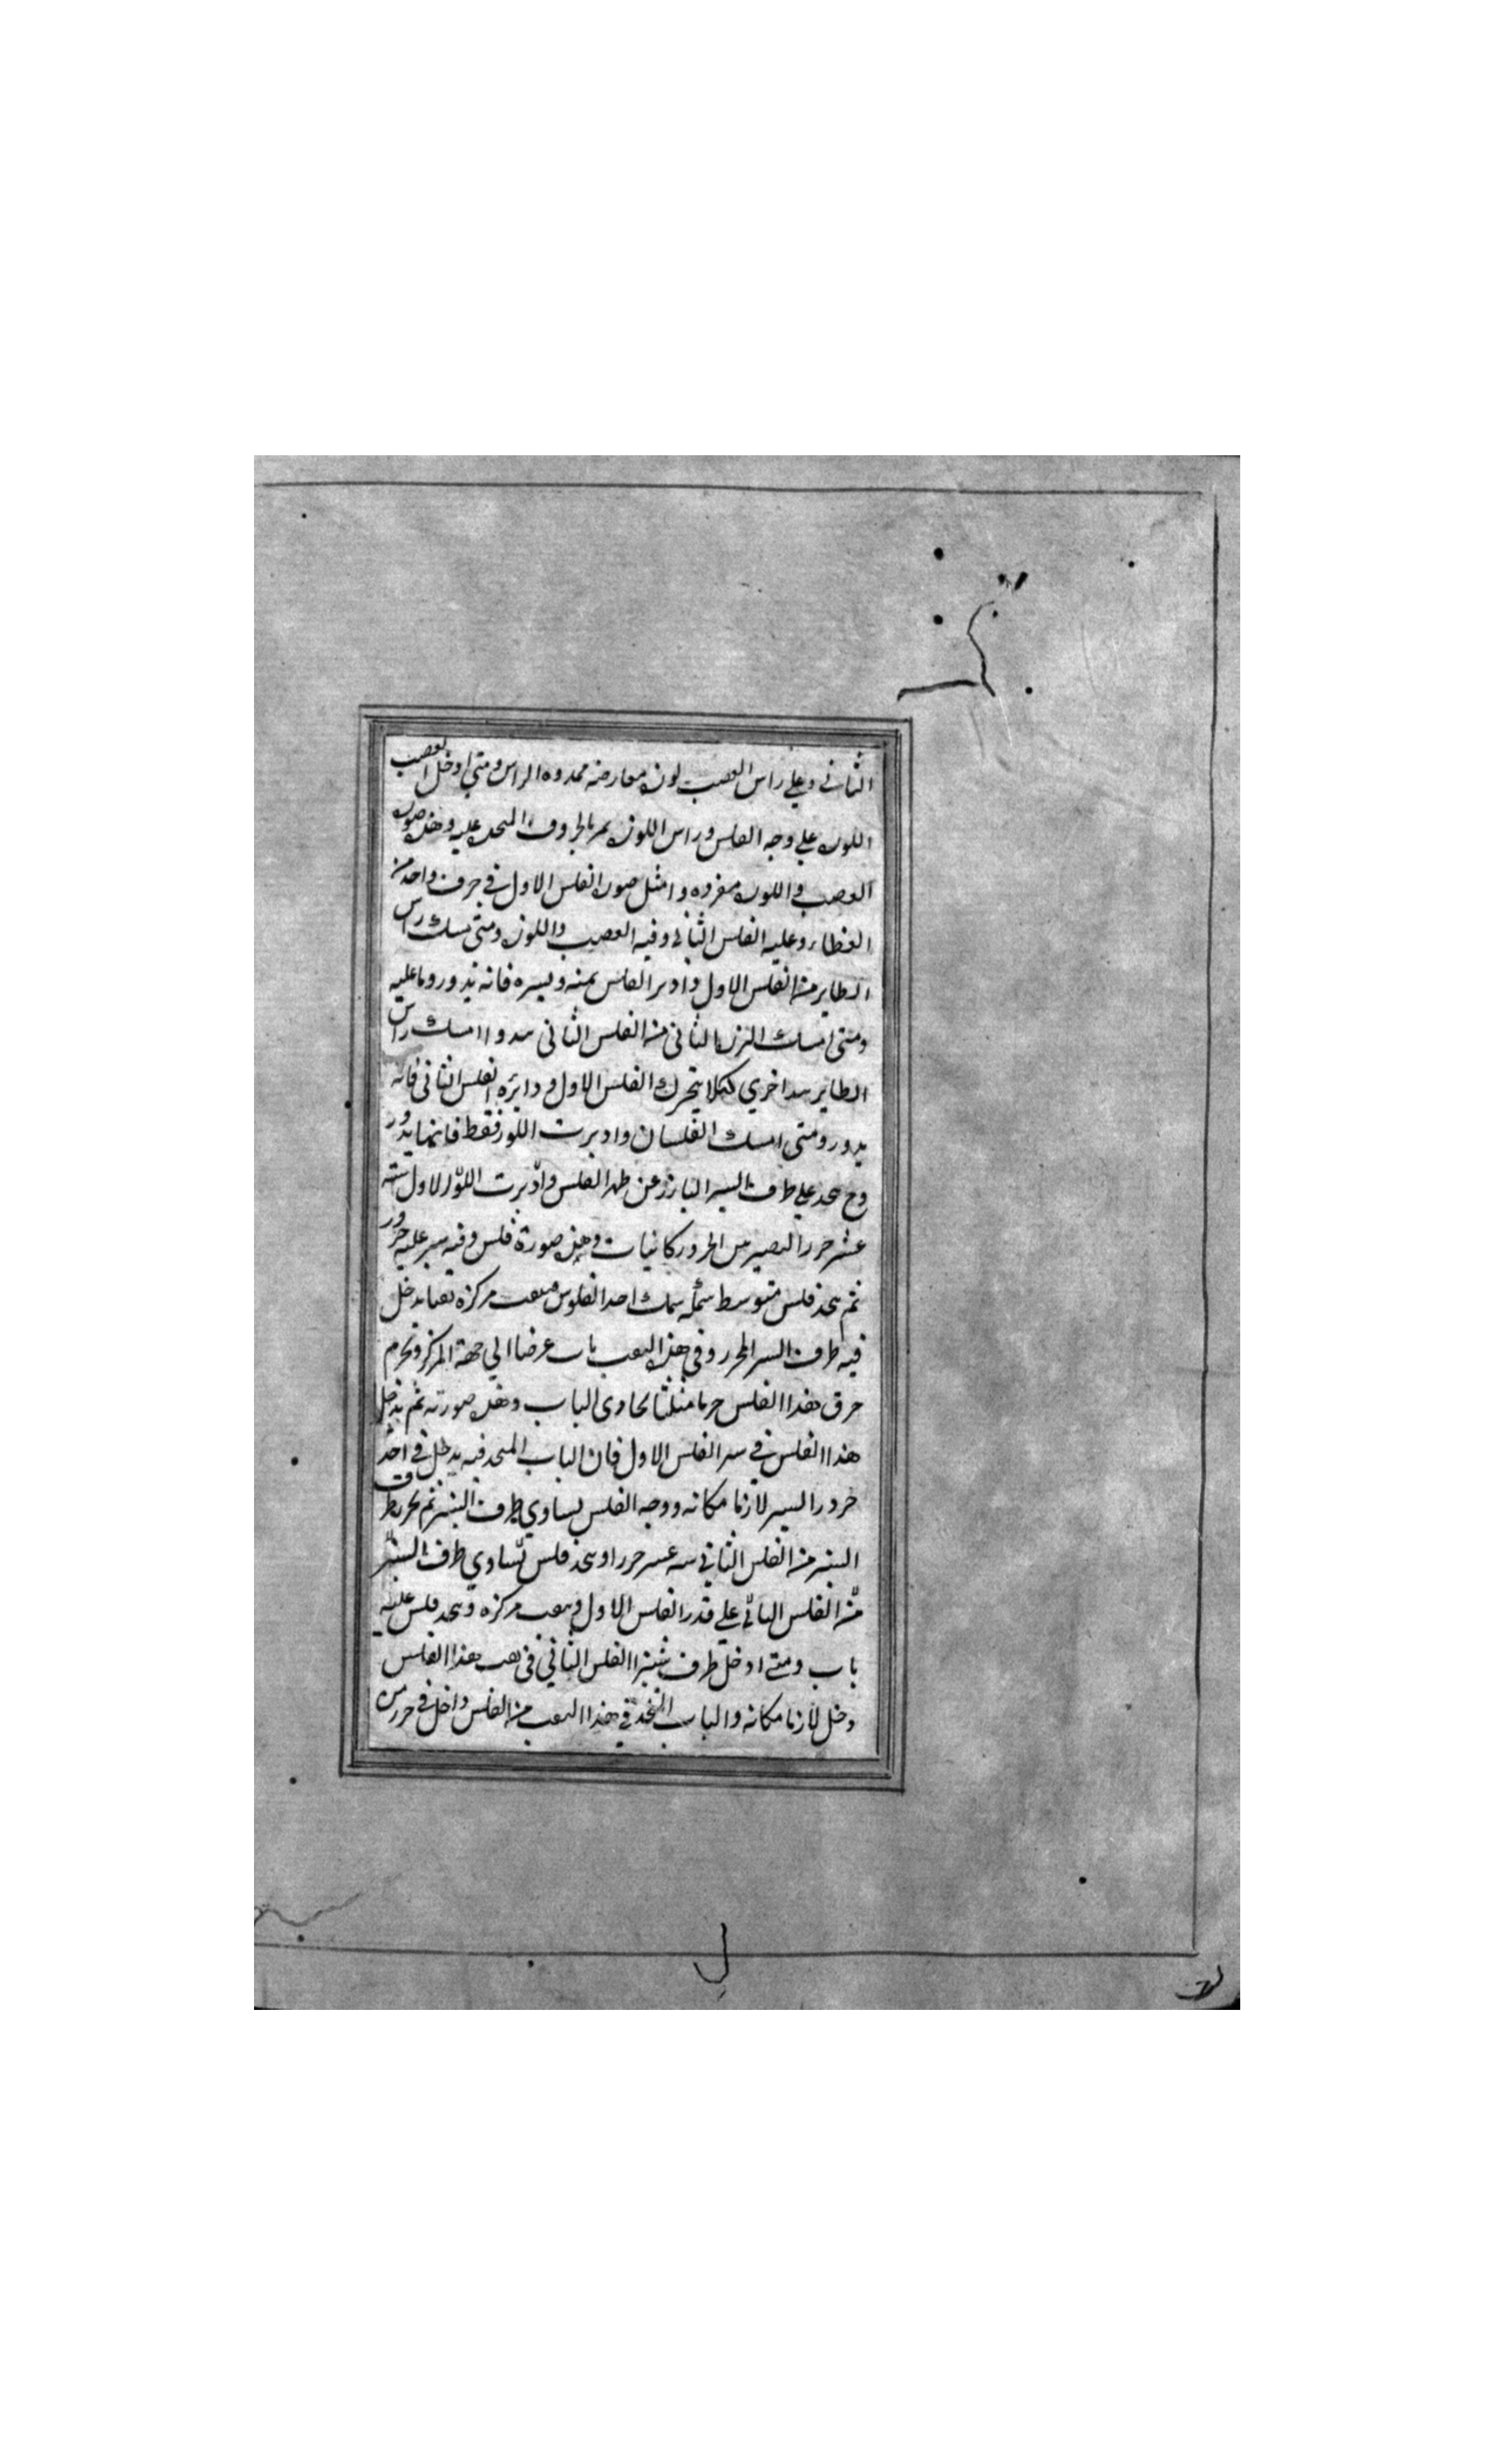 الثاني وعلى راس القصب لوزه معارضه ممدوده الراس ومتى ادخل القصب
اللوزه على وجه الفلس وراس اللوزه يمر بالحروف المتخذ عليه وهذه صوره
القصب واللوزه مفرده وامثل صوره الفلس الاول في حرف واحد من
الغطاء وعليه الفلس الثاني وفيه القصب واللوزه ومتى مسك راس
الطاير من الفلس الاول وادير الفلس يمنه ويسره فانه يدور وما عليه
ومتى امسك الزر الثاني من الفلس الثاني بيد وامسك راس
الطاير بيد اخري كيلا يتحرك الفلس الاول ودايره الفلس الثاني فانه
يدور ومتى امسك الفلسان واديرت اللوزه فقط فانها يدور
وح يتخذ على طرف السير البارز عن ظهر الفلس واديرت اللوز الاول سته
عشر حرر اليصير بين الحرور كانيات وهذه صورة فلس وفيه سير عليه حرور
ثم يتخذ فلس متوسط سمكه سمك احد الفلوس ويثقب مركزه ثقبا يدخل
فيه طرف السير المحرر وفي هذا الثقب باب عرضا الي جهة المركز ويخرم
حرق هذا الفلس خرما مثلثا يحاوى الباب وهذه صورته ثم يدخل
هذا الفلس في سير الفلس الاول فان الباب المتخذ فيه يدخل في احد
حرور السير لازما مكانه ووجه الفلس يساوي طرف السير ثم يحرر طرف
السير من الفلس الثاني سته عشر حررا ويتخذ فلس يساوي طرف السير
من الفلس الثاني على قدر الفلس الاول ويثقب مركزه ويتخذ فلس عليه
باب ومتى ادخل طرف سير الفلس الثاني في ثقب هذا الفلس
دخل لازما مكانه والباب المتخذ في هذا الثقب من الفلس داخل في حرر من